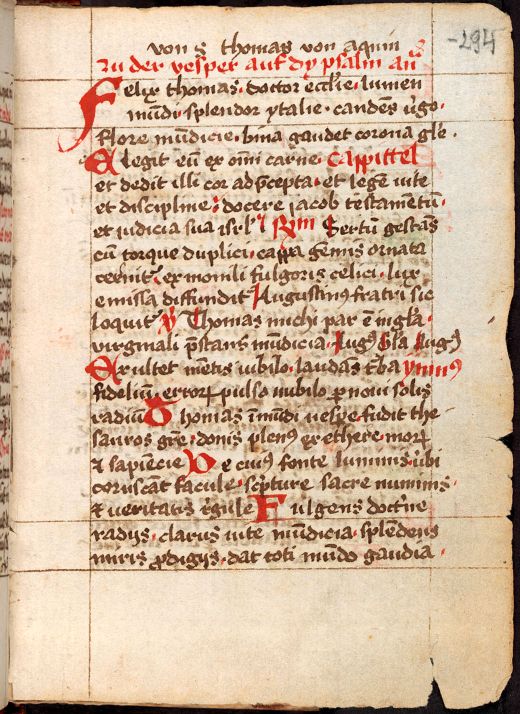 -294
von S thomas von aquin
zu der vesper auf dy psalm añ
Felix thomas · doctor eccl'ie · lumen
mūdi · splendor ytalie · candēs v'go ·
flore mūdicie · bina gaudet corona gl'e ·
Elegit eū ex omi carne · Cappittel
et dedit illi cor ad p̄cepta · et legē vite
et discipline · docere jacob testamētū ·
et iudicia sua isrl' Rm̄ Sertum gestās
cū torque duplici · cappa gēmis ornata
cernit' · ex monili fulgoris celici · lux
emissa diffundit Augustin9 fratri sic
loquit' V Thomas michi par ē in gl'ia ·
virginali p̄stans mūdicia · Aug9 Gl'a Aug9
Exultet mētis iubilo · laudās t'ba ymn9
fidelium · error pulso nubilo p noui solis
radiū Thomas ī mūdi vespe · fudit the
sauros gr̄e · donis plen9 ex ethere · mor
et sapiēcie De cui9 fonte luminis · v'bi
coruscāt facule · sc'pture sacre numinis ·
et veritatis r'gule Fulgens doct'ne
radijs · clarus vite mūdicia · splēdens
miris p̄digijs · dat toti mūdo gaudia ·